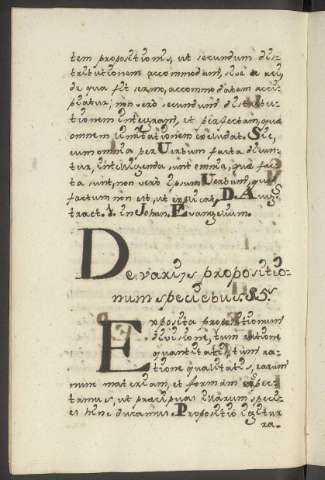 tem propositionis, ut secundum dis-
tributionem accommodam, sive a rei,
de qua fit sermo, accommodatam acci-
piatur, non vero secundum distribu-
tionem integram, et perfectam, quæ
omnem limitationem excludat. Sic,
cum omnia per Verbum facta dicun-
tur, intelligenda sunt omnia, quæ fac-
ta sunt, non vero ipsum Verbum, quod
factum non est, ut explicat D. Aug.
tract. 1. in Johan. Evangelium.
De varijs propositio-
num speciebus. §.
Exposita propositionum
divisione, tum ratione
quantitatis, tum ra-
tione qualitatis, earum
num materiam, et formam spec-
tamus, ut præcipuas illarum speci-
es hinc ducamus. Propositio igitur
ra-